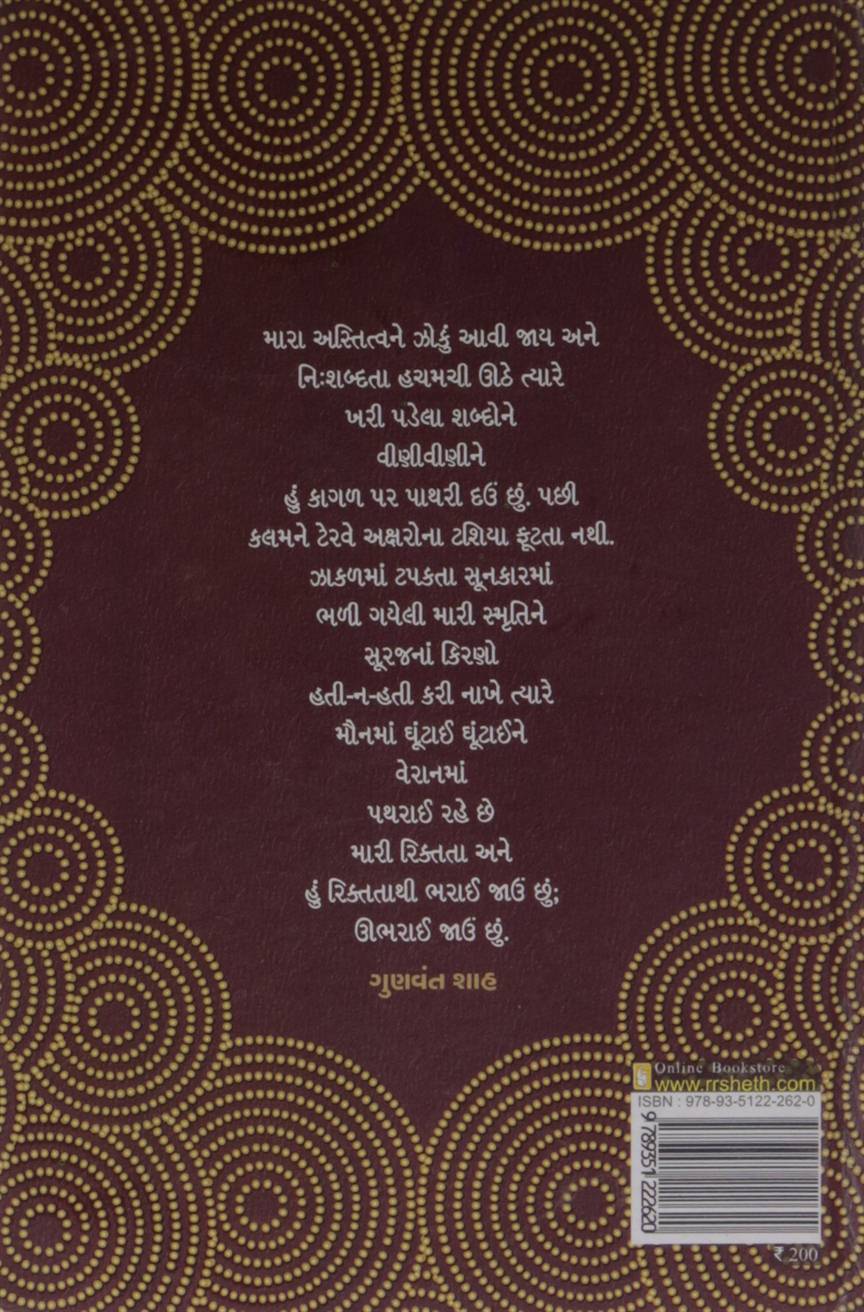 મારા અસ્તિત્વને ઝોકું આવી જાય અને
નિઃશબ્દતા હચમચી ઊઠે ત્યારે
ખરી પડેલા શબ્દોને
વીણીવીણીને
હું કાગળ પર પાથરી દઉં છું. પછી
કલમને ટેરવે અક્ષરોના ટશિયા ફૂટતા નથી.
ઝાકળમાં ટપકતા સૂનકારમાં
ભળી ગયેલી મારી સ્મૃતિને
સૂરજનાં કિરણો
હતી-ન-હતી કરી નાખે ત્યારે
મૌનમાં ઘૂંટાઈ ઘૂંટાઈને
વેરાનમાં
પથરાઈ રહે છે
મારી રિક્તતા અને
હું રિક્તતાથી ભરાઈ જાઉં છું;
ઊભરાઈ જાઉં છું.
ગુણવંત શાહ
Online Bookstore
www.rrsheth.com
ISBN : 978-93-5122-262-0
9 789351 222620
₹ 200